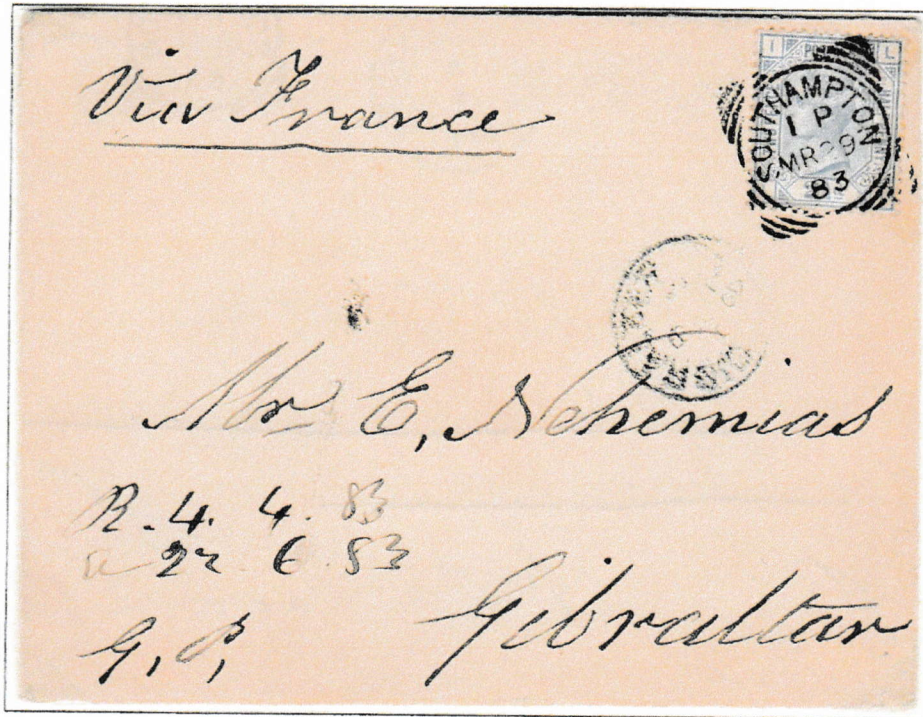 Via France
I L
SOUTHAMPTON
1 P
MR 29
83
Mr E, Nehemias
R. 4. 4. 83
22 6 83
Gibraltar
G, P,